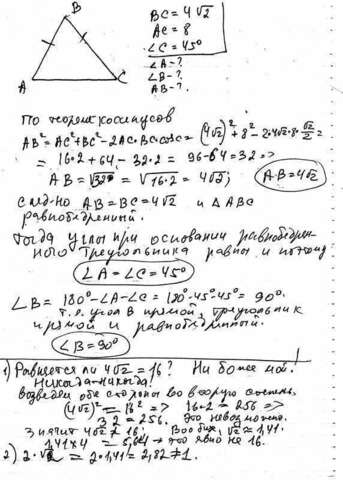 B
A
C
BC = 4√2
AC = 8
∠C = 45°
∠A - ?
∠B - ?
AB - ?
По теореме косинусов
AB² = AC² + BC² - 2AC·BC·cosC = (4√2)² + 8² - 2·4√2·8·√2/2 =
= 16·2 + 64 - 32·2 = 96-64 = 32 =>
AB = √32 = √16·2 = 4√2; AB = 4√2
след-но AB = BC = 4√2 и △ABC
равнобедренный.
Тогда углы при основании равнобедрен-
ного треугольника равны и поэтому
∠A = ∠C = 45°
∠B = 180° - ∠A - ∠C = 180°-45°-45° = 90°.
т.е. угол B прямой, треугольник
прямой и равнобедренный.
∠B = 90°
1) Равняется ли 4√2 = 16? Ни боже мой.
Никогда-никогда!
Возведем обе стороны во вторую степень.
(4√2)² = 16² => 16·2 = 256 =>
32 = 256. Это невозможно.
Значит 4√2 ≠ 16. Вообще, √2 ≈ 1,41.
1,41×4 = 5,64 → это явно не 16.
2) 2·√2 = 2·1,41 = 2,82 ≠ 1.